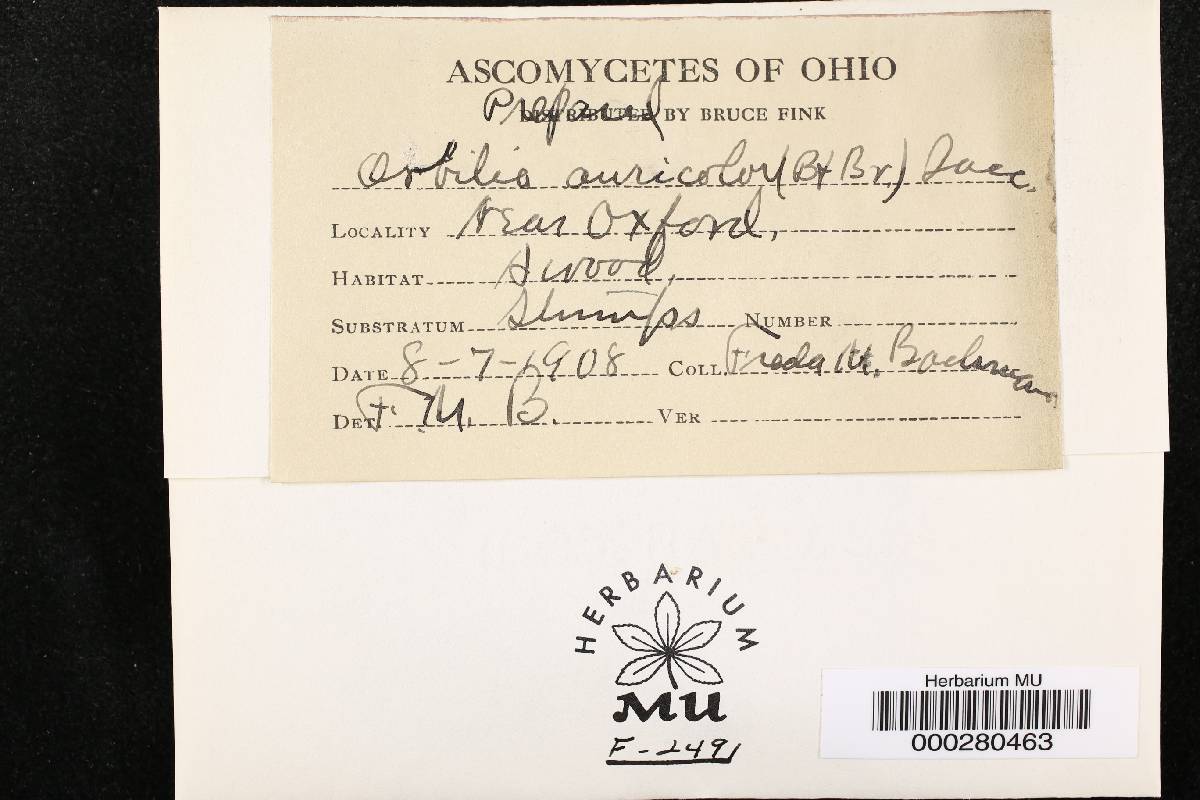 ASCOMYCETES OF OHIO
Prepared
DISTRIBUTED BY BRUCE FINK
Orbilia auricolor (B & Br.) Sacc.
LOCALITY Near Oxford,
HABITAT A wood,
SUBSTRATUM Stumps NUMBER
DATE 8-7-1908 COLL. Freda M. Bachman
DET F. M. B. VER
HERBARIUM
MU
F-2491
Herbarium MU
000280463